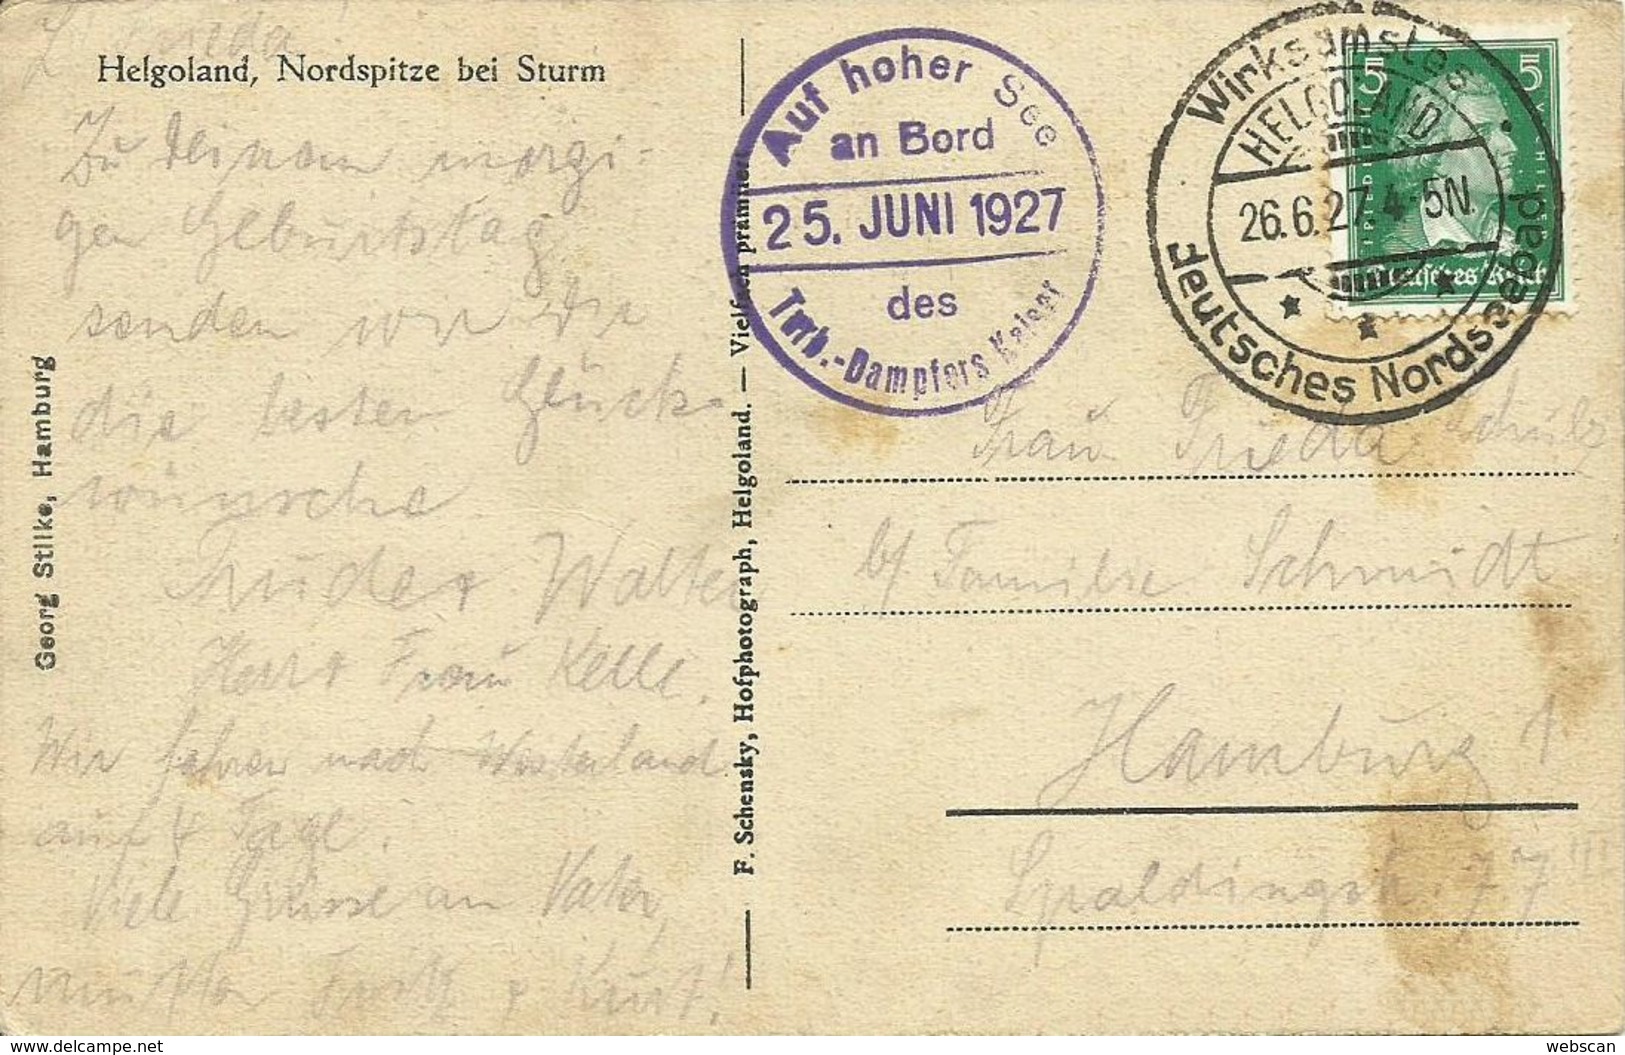 L. Frieda!
Helgoland, Nordspitze bei Sturm
Zu Deinem morgi-
gen Geburtstag
senden wir Dir
die besten Glücks
wünsche
Trudes Walter
Herr & Frau Kelle.
Wir fahren nach Westerland
auf 4 Tage.
Viele Grüsse an Vater,
Mutter Fritz & Kurt!
Georg Stilke, Hamburg
F. Schensky, Hofphotograph, Helgoland. — Vielfach prämiiert
Auf hoher See
an Bord
25. JUNI 1927
des
Turb.-Dampfers Kaiser
Wirksamstes
HELGOLAND
26.6.27. 4-5N.
deutsches Nordseebad
5 5
Deutsches Reich
Frau Frieda Schulz
b/ Familie Schmidt
Hamburg 1
Spaldingstr. 77 III
www.delcampe.net
webscan